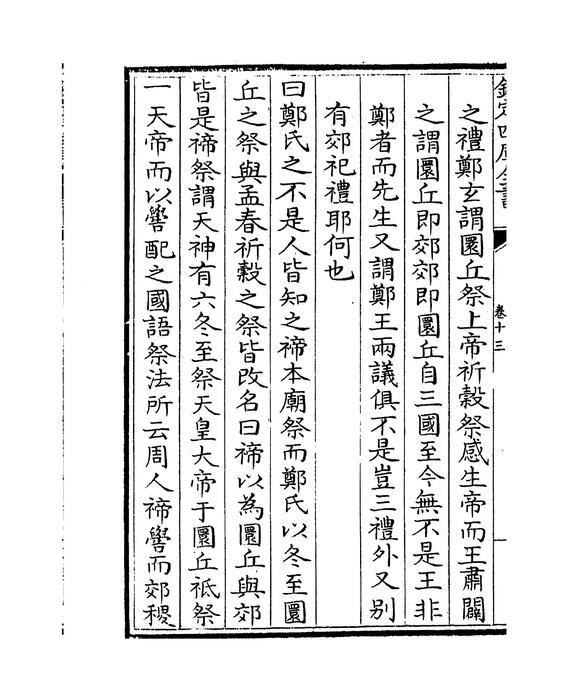 欽定四庫全書
卷十三
之禮鄭玄謂圜丘祭上帝祈穀祭感生帝而王肅闢
之謂圜丘即郊郊即圜丘自三國至今無不是王非
鄭者而先生又謂鄭王兩議俱不是豈三禮外又别
有郊祀禮耶何也
曰鄭氏之不是人皆知之禘本廟祭而鄭氏以冬至圜
丘之祭與孟春祈穀之祭皆改名曰禘以為圜丘與郊
皆是禘祭謂天神有六冬至祭天皇大帝于圜丘祗祭
一天帝而以嚳配之國語祭法所云周人禘嚳而郊稷